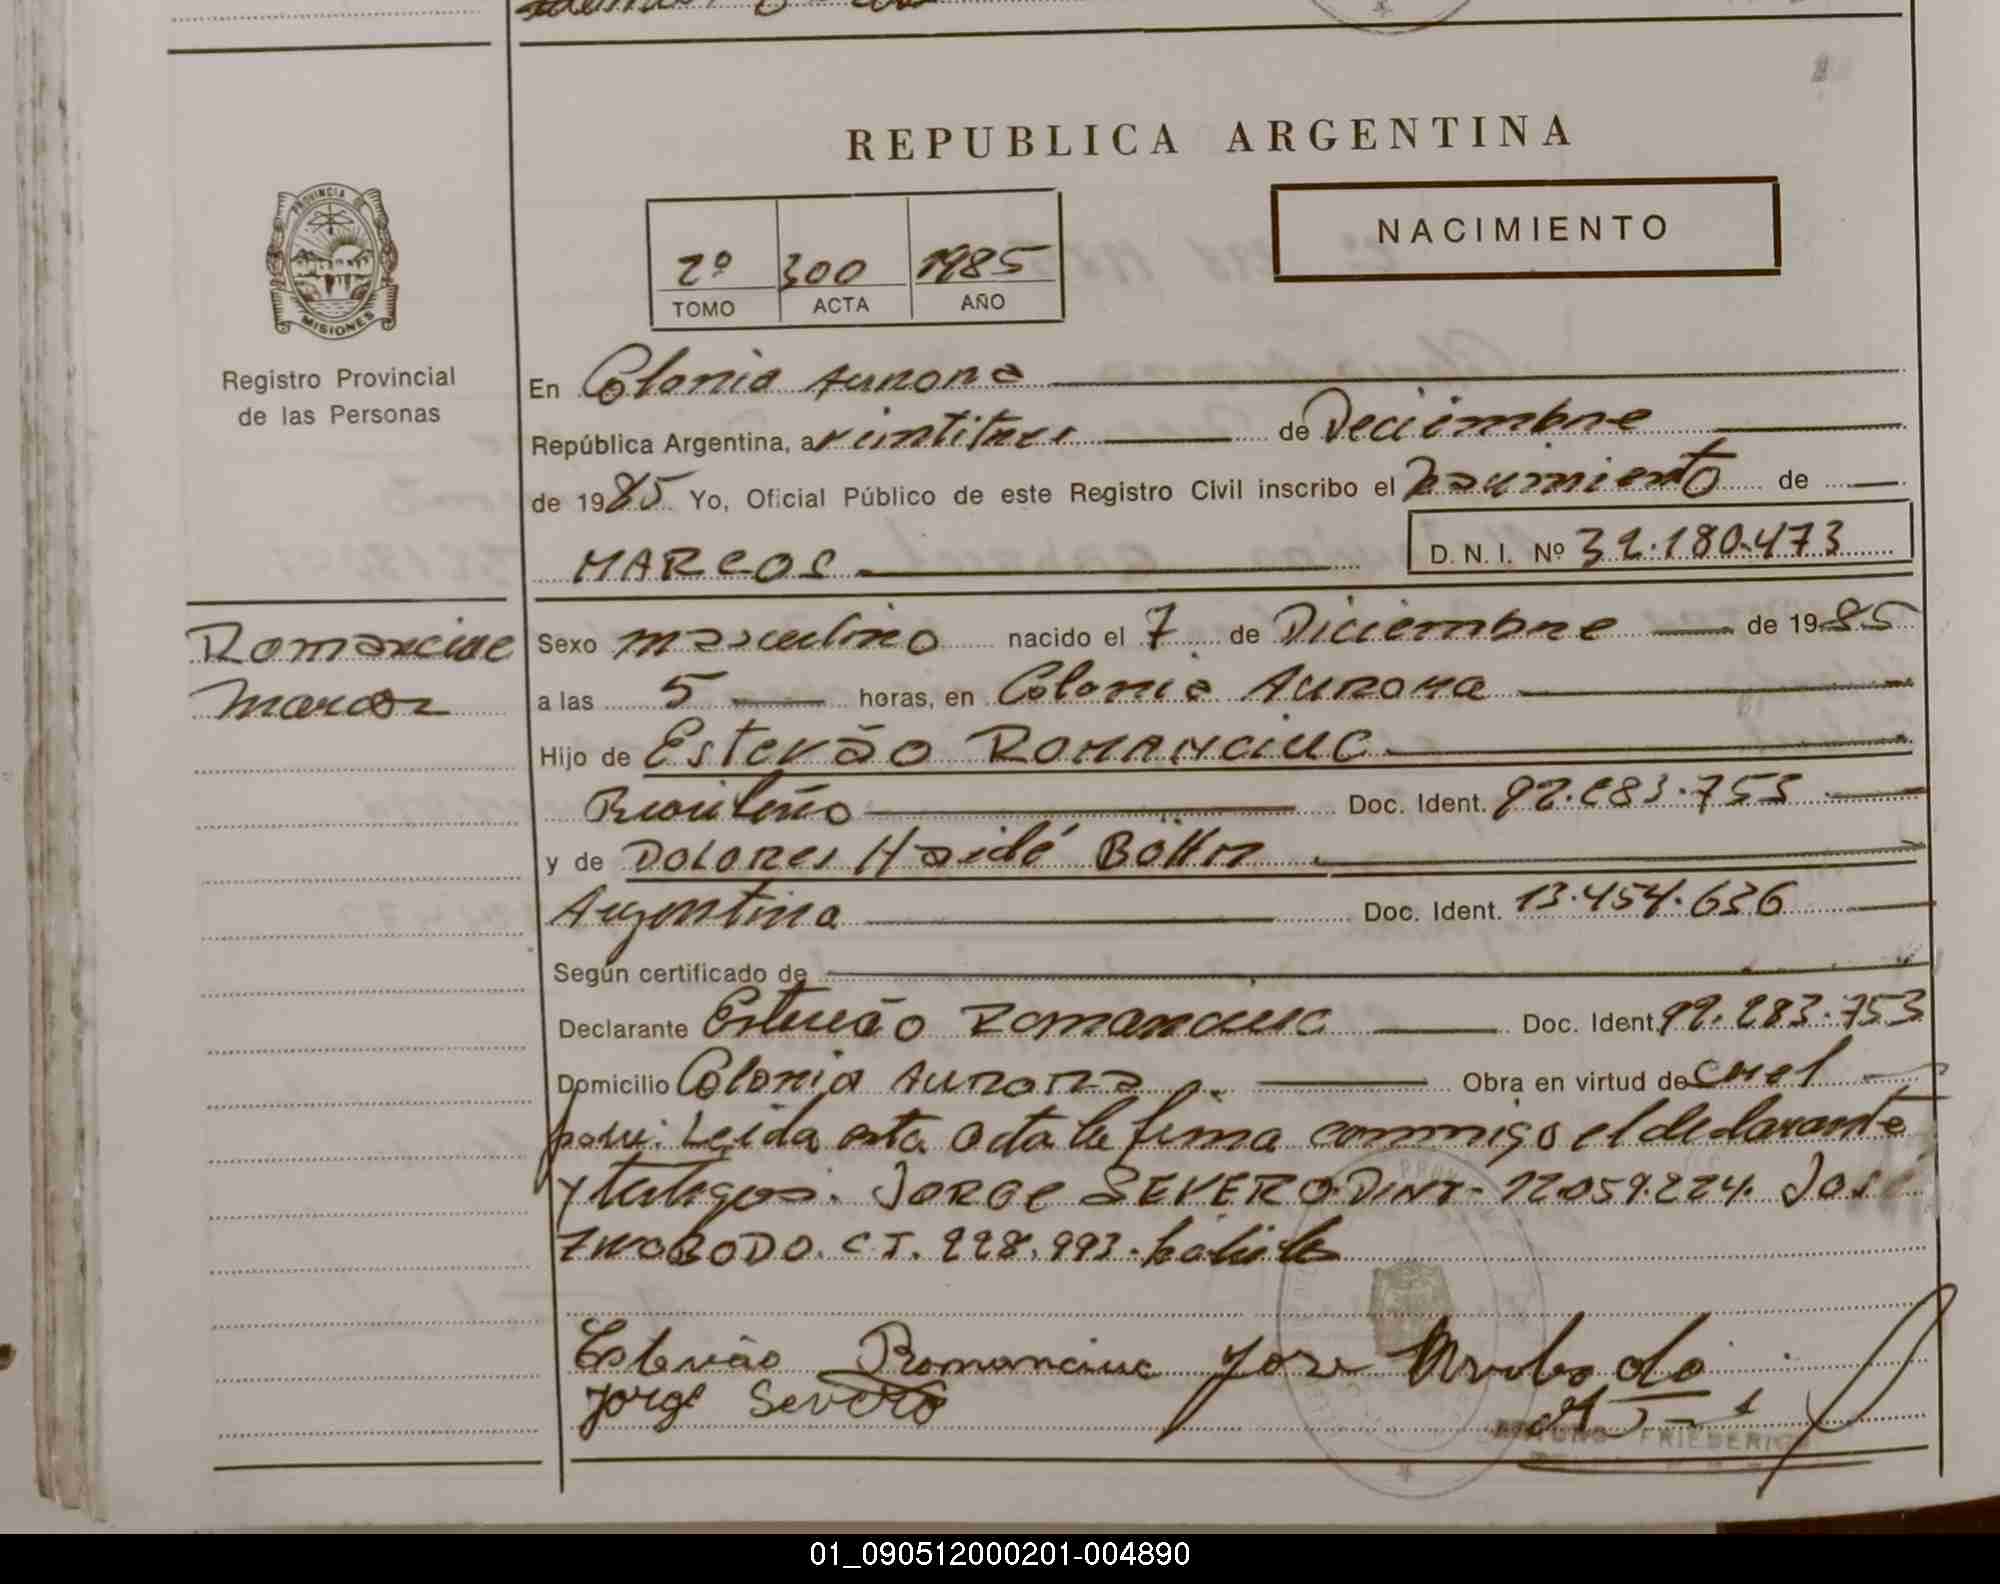 REPUBLICA ARGENTINA
NACIMIENTO
2º 300 1985
TOMO ACTA AÑO
PROVINCIA DE
MISIONES
Registro Provincial
de las Personas
En Colonia Aurora
República Argentina, a veintitres de Deciembre
de 1985 Yo, Oficial Público de este Registro Civil inscribo el Nacimiento de
MARCOS D. N. I. Nº 32.180.473
Romanciuc
Marcos
Sexo masculino nacido el 7 de Diciembre de 1985
a las 5 horas, en Colonia Aurora
Hijo de Estevão ROMANCIUC
Brasileño Doc. Ident. 92.283.753
y de DOLORES Haidé
Argentina Doc. Ident. 13.454.636
Según certificado de
Declarante Estevão Romanciuc Doc. Ident. 92.283.753
Domicilio Colonia Aurora Obra en virtud de
Leida esta acta la firma conmigo el declarante
y testigos. JORGE SEVERO. 12.059.224. José
C.I. 228.993.
Estevão Romanciuc Jose
Jorge Severo
FRIEDERICH
01_090512000201-004890